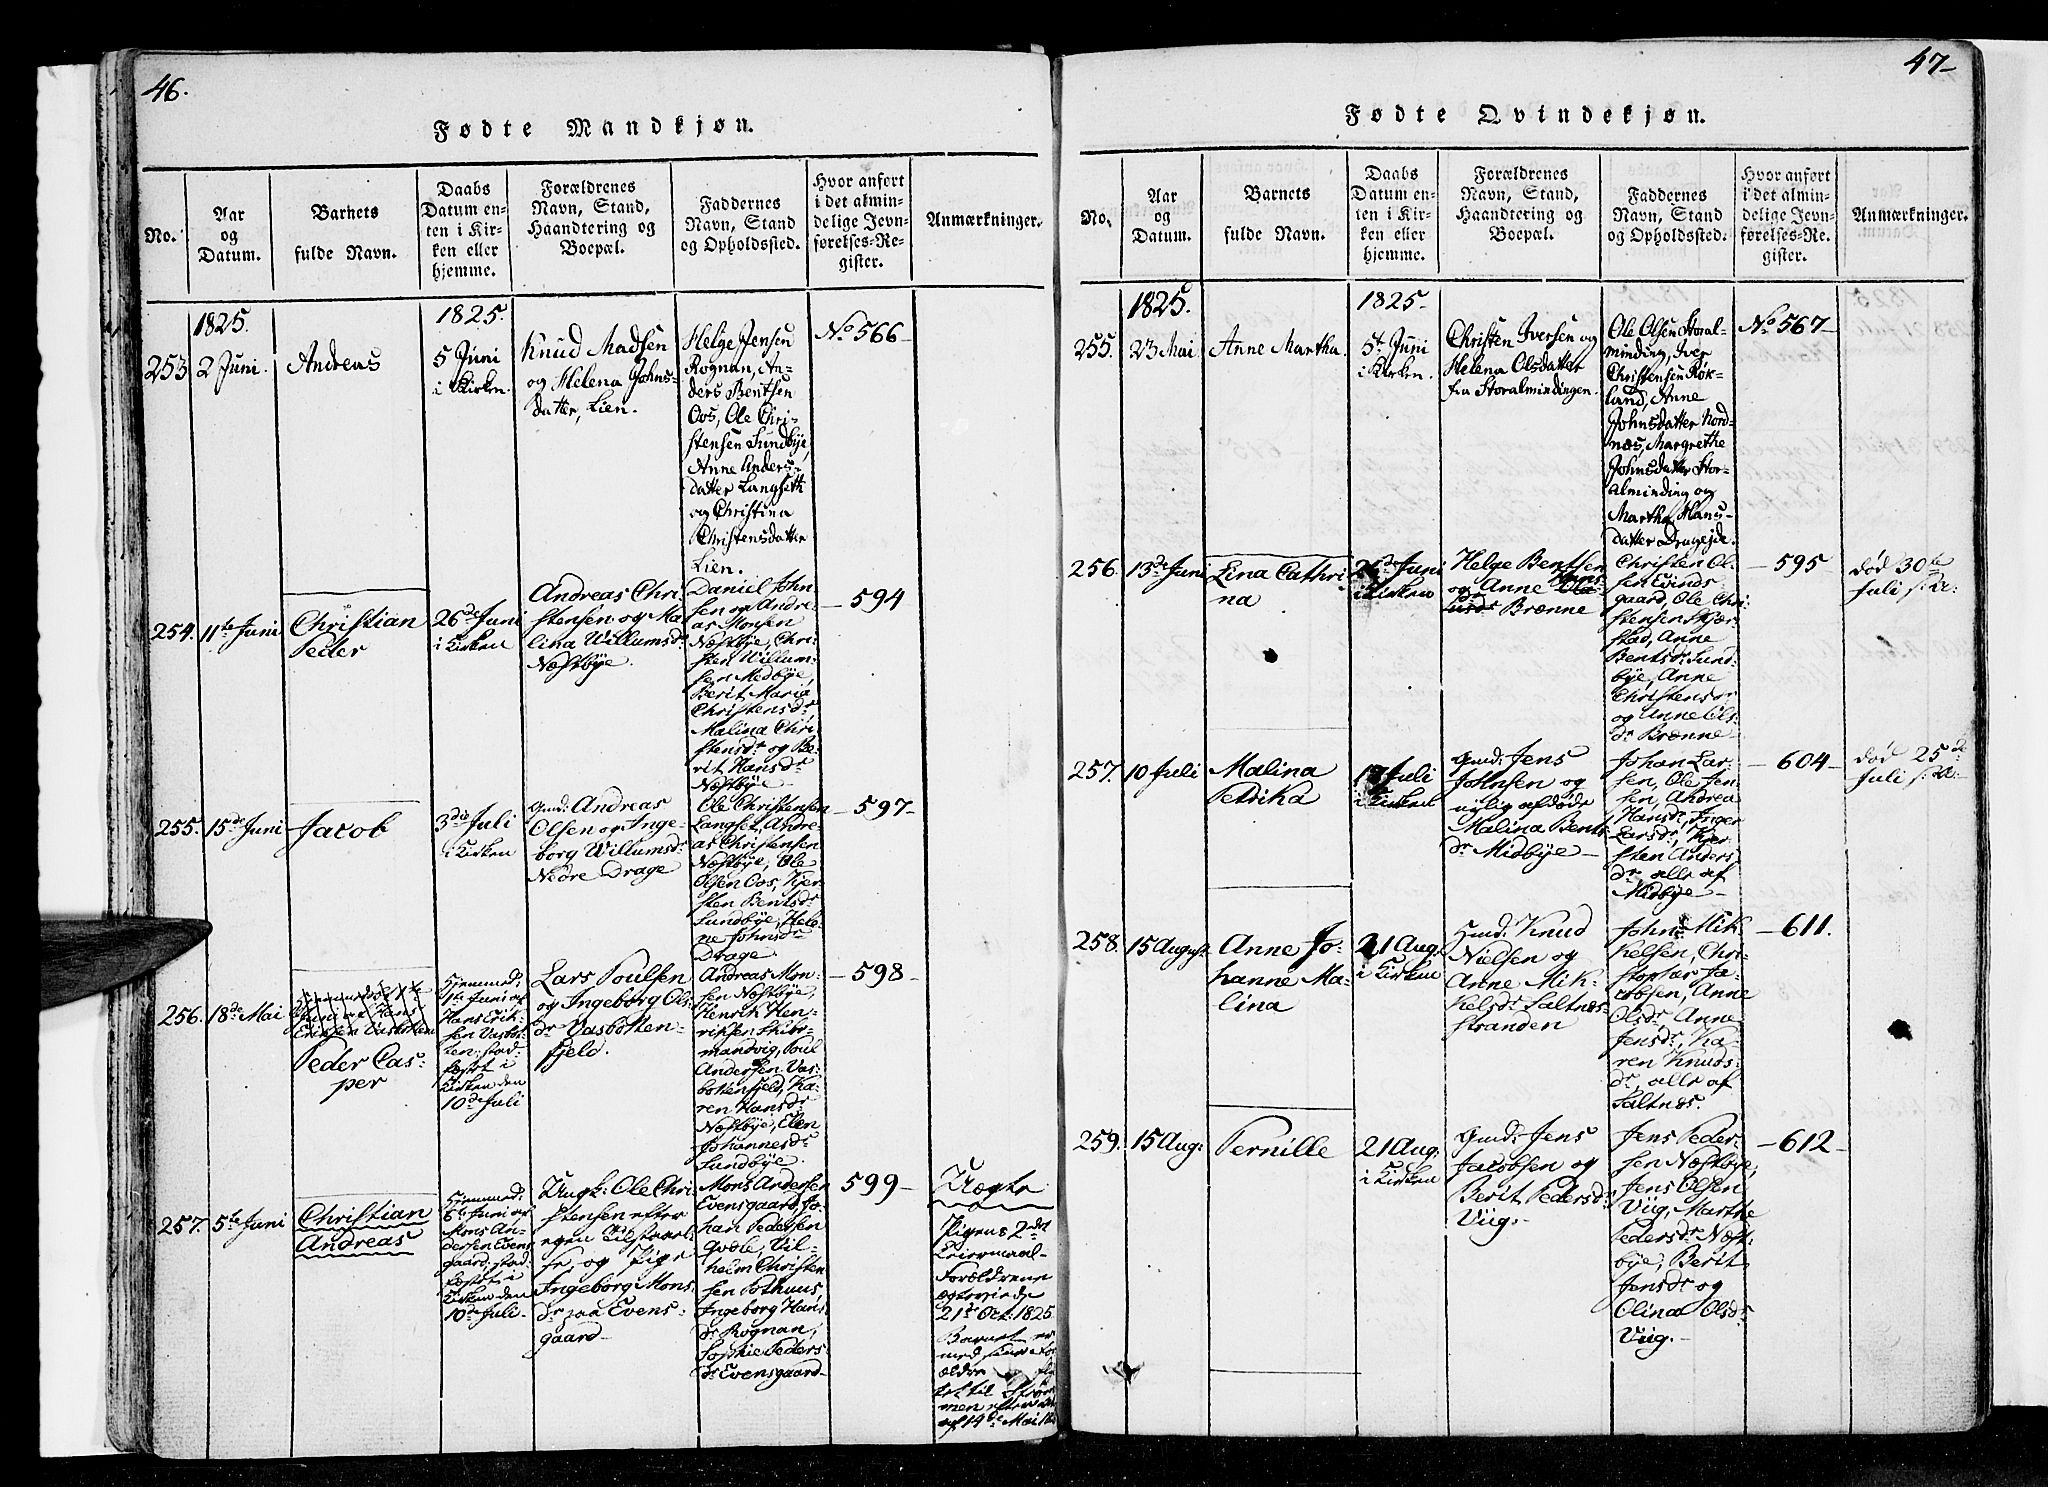 46.
Fødte Mandkjøn.
No.
Aar
og
Datum.
Barnets
fulde Navn.
Daabs
Datum en-
ten i Kir-
ken eller
hjemme.
Forældrenes
Navn, Stand,
Haandtering og
Boepæl.
Faddernes
Navn, Stand
og Opholdssted.
Hvor anført
i det almin-
delige Jevn-
førelses-Re-
gister.
Anmærkninger.
253
1825.
2 Juni.
Andreas
1825.
5 Juni
i Kirken.
Knud Madsen
og Helena Johns-
datter, Lien.
Helge Jensen
Rognan, An-
ders Bentsen
Oos, Ole Chri-
stensen Sundbÿe,
Anne Anders-
datter Langseth
og Christina
Christensdatter
Lien.
No 566
254.
11te Juni
Christian
Peder
26de Juni
i Kirken
Andreas Chri-
stensen og Ma-
lina Willumsdr
Næstbÿe.
Daniel John-
sen og Andre-
as Monsen
Næstbÿe, Chri-
sten Willum-
sen Medbÿe,
Berit Maria
Christensdr
Malina Chri-
stensdr og Be-
rit Hansdr
Næstbÿe
594
255.
15de Juni
Jacob
3die Juli
i Kirken
Gmd: Andreas
Olsen og Inge-
borg Willumsdr
Nedre Drage
Ole Christensen
Langset, Andre-
as Christensen
Næstbÿe, Ole
Olsen Oos, Kjer-
sten Bentsdr
Sundbÿe, Hele-
ne Johnsdr
Drage
597
256.
18de Mai
Peder Cas-
per
Hjemmed:
1te Juni af
Hans Erik-
sen Vasbot-
ten: stad-
fæstet i
Kirken den
10de Juli
Lars Poulsen
og Ingeborg Ols-
dr Vasbotten-
fjeld.
Andreas Mon-
sen Næstbÿe,
Henrik Hen-
riksen Skibs-
mandvig, Poul
Andersen Vas-
bottenfjeld, Ka-
ren Hansdr
Næstbÿe, Elen
Johannesdr
Sundbÿe.
598
257.
5te Juni
Christian
Andreas
Hjemmed:
6te Juni af
Mons An-
dersen Evens-
gaard, stad-
fæstet i
Kirken den
10de Juli.
Ungk: Ole Chri-
stensen efter
egen Tilstaael-
se, og Pige
Ingeborg Mons-
dr paa Evens-
gaard
Mons Andersen
Evensgaard, Jo-
han Pedersen
Vil-
helm Christen
sen Pothuus,
Ingeborg Hans
dr Rognan,
Sophie Peders
dr Evensgaard
599
Uægte
Pigens 2det
Leiermaal
Forældrene
ægteviede
21de Oct. 1825
Barnet er
med sine For
ældre flÿt
tet til Strøm
men efter
af 14de Mai
47
Fødte Qvindekjøn.
No.
Aar
og
Datum.
Barnets
fulde Navn.
Daabs
Datum en-
ten i Kir-
ken eller
hjemme.
Forældrenes
Navn, Stand,
Haandtering og
Boepæl.
Faddernes
Navn, Stand
og Opholdssted.
Hvor anført
i det almin-
delige Jevn-
førelses-Re-
gister.
Anmærkninger.
255.
1825.
23 Mai
Anne Martha.
1825.
5t Juni
i Kirken.
Christen Iversen og
Helena Olsdatter
fra Storalmindingen.
Ole Olsen Storal-
minding, Iver
Christensen Røk-
land, Anne
Johnsdatter Nord-
næs, Margrethe
Johnsdatter Stor-
alminding og
Martha Hans-
datter Drageide.
No 567
256.
13de Juni
Lina Cathri
na
26de Juni
i Kirken
Helge Bentsen
og Anne Hans-
dr Brænne
Christen Ol-
sen Evinds-
gaard, Ole Chri-
stensen Skjær-
stad, Anne
Bentsdr Sund-
bÿe, Anne
Christensdr
og Anne Ols-
dr Brænne
595
død 30te
Juli s: A:
257.
10 Juli
Malina
Petrika
17 Juli
i Kirken
Gmd: Jens
Johnsen og
nÿlig afdøde
Malina Bents
dr Midbÿe
Johan Lar-
sen, Ole Jen-
sen, Andrea
Hansdr, Inger
Larsdr, Kjer-
sten Anders
dr, alle af
Midbÿe
604
død 25de
Juli s: A:
258.
15 August.
Anne Jo-
hanne Ma-
lina
21 Aug:
i Kirken
Hmd: Knud
Nielsen og
Anne Mik-
kelsdr Saltnes-
stranden
John Mik-
kelsen, Chri-
stopher Ja-
cobsen, Anne
Olsdr, Anne
Jensdr, Ka-
ren Knuds-
dr, alle af
Saltnæs.
611.
259.
15 Aug:
Pernille
21 Aug:
i Kirken
Gmd: Jens
Jacobsen og
Berit Pedersdr
Viig.
Jens Peder-
sen Næstbÿe,
Jens Olsen
Viig, Marthe
Pedersdr Næst-
bÿe, Berit
Jensdr og
Olina Olsdr
Viig.
612